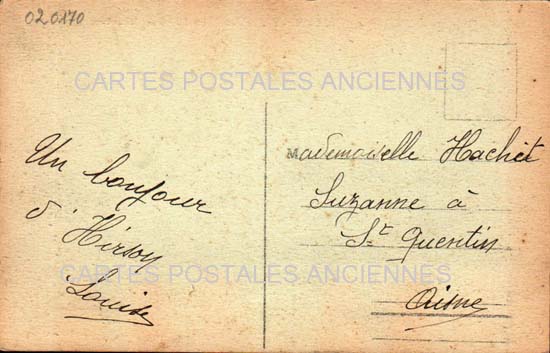 020170
CARTES POSTALES ANCIENNES
Un bonjour
d'Hirson
Louise
Mademoiselle Hachet
Suzanne à
St Quentin
Aisne
CARTES POSTALES ANCIENNES